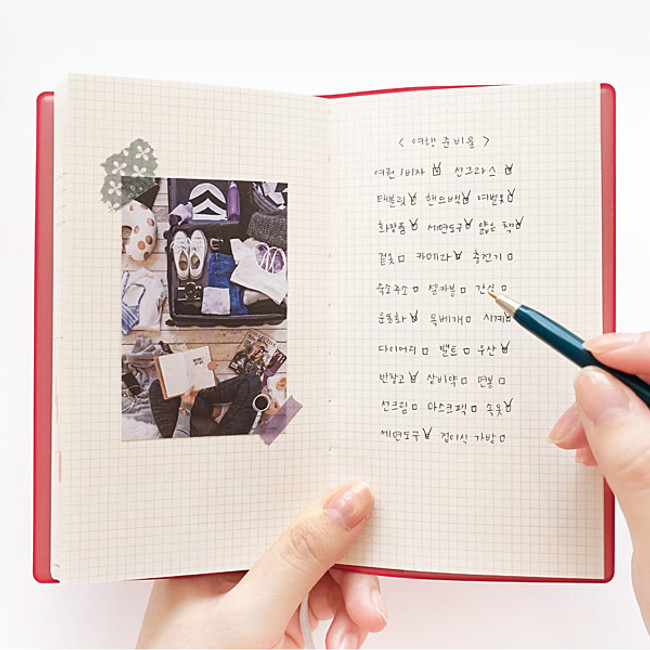 < 여행 준비물 >
여권/비자 선그라스
태블릿 핸드백 여벌옷
화장품 세면도구 얇은 책
겉옷 카메라 충전기
숙소주소 셀카봉 간식
운동화 목베개 시계
다이어리 벨트 우산
반창고 상비약 면봉
선크림 마스크팩 속옷
세면도구 접이식 가방